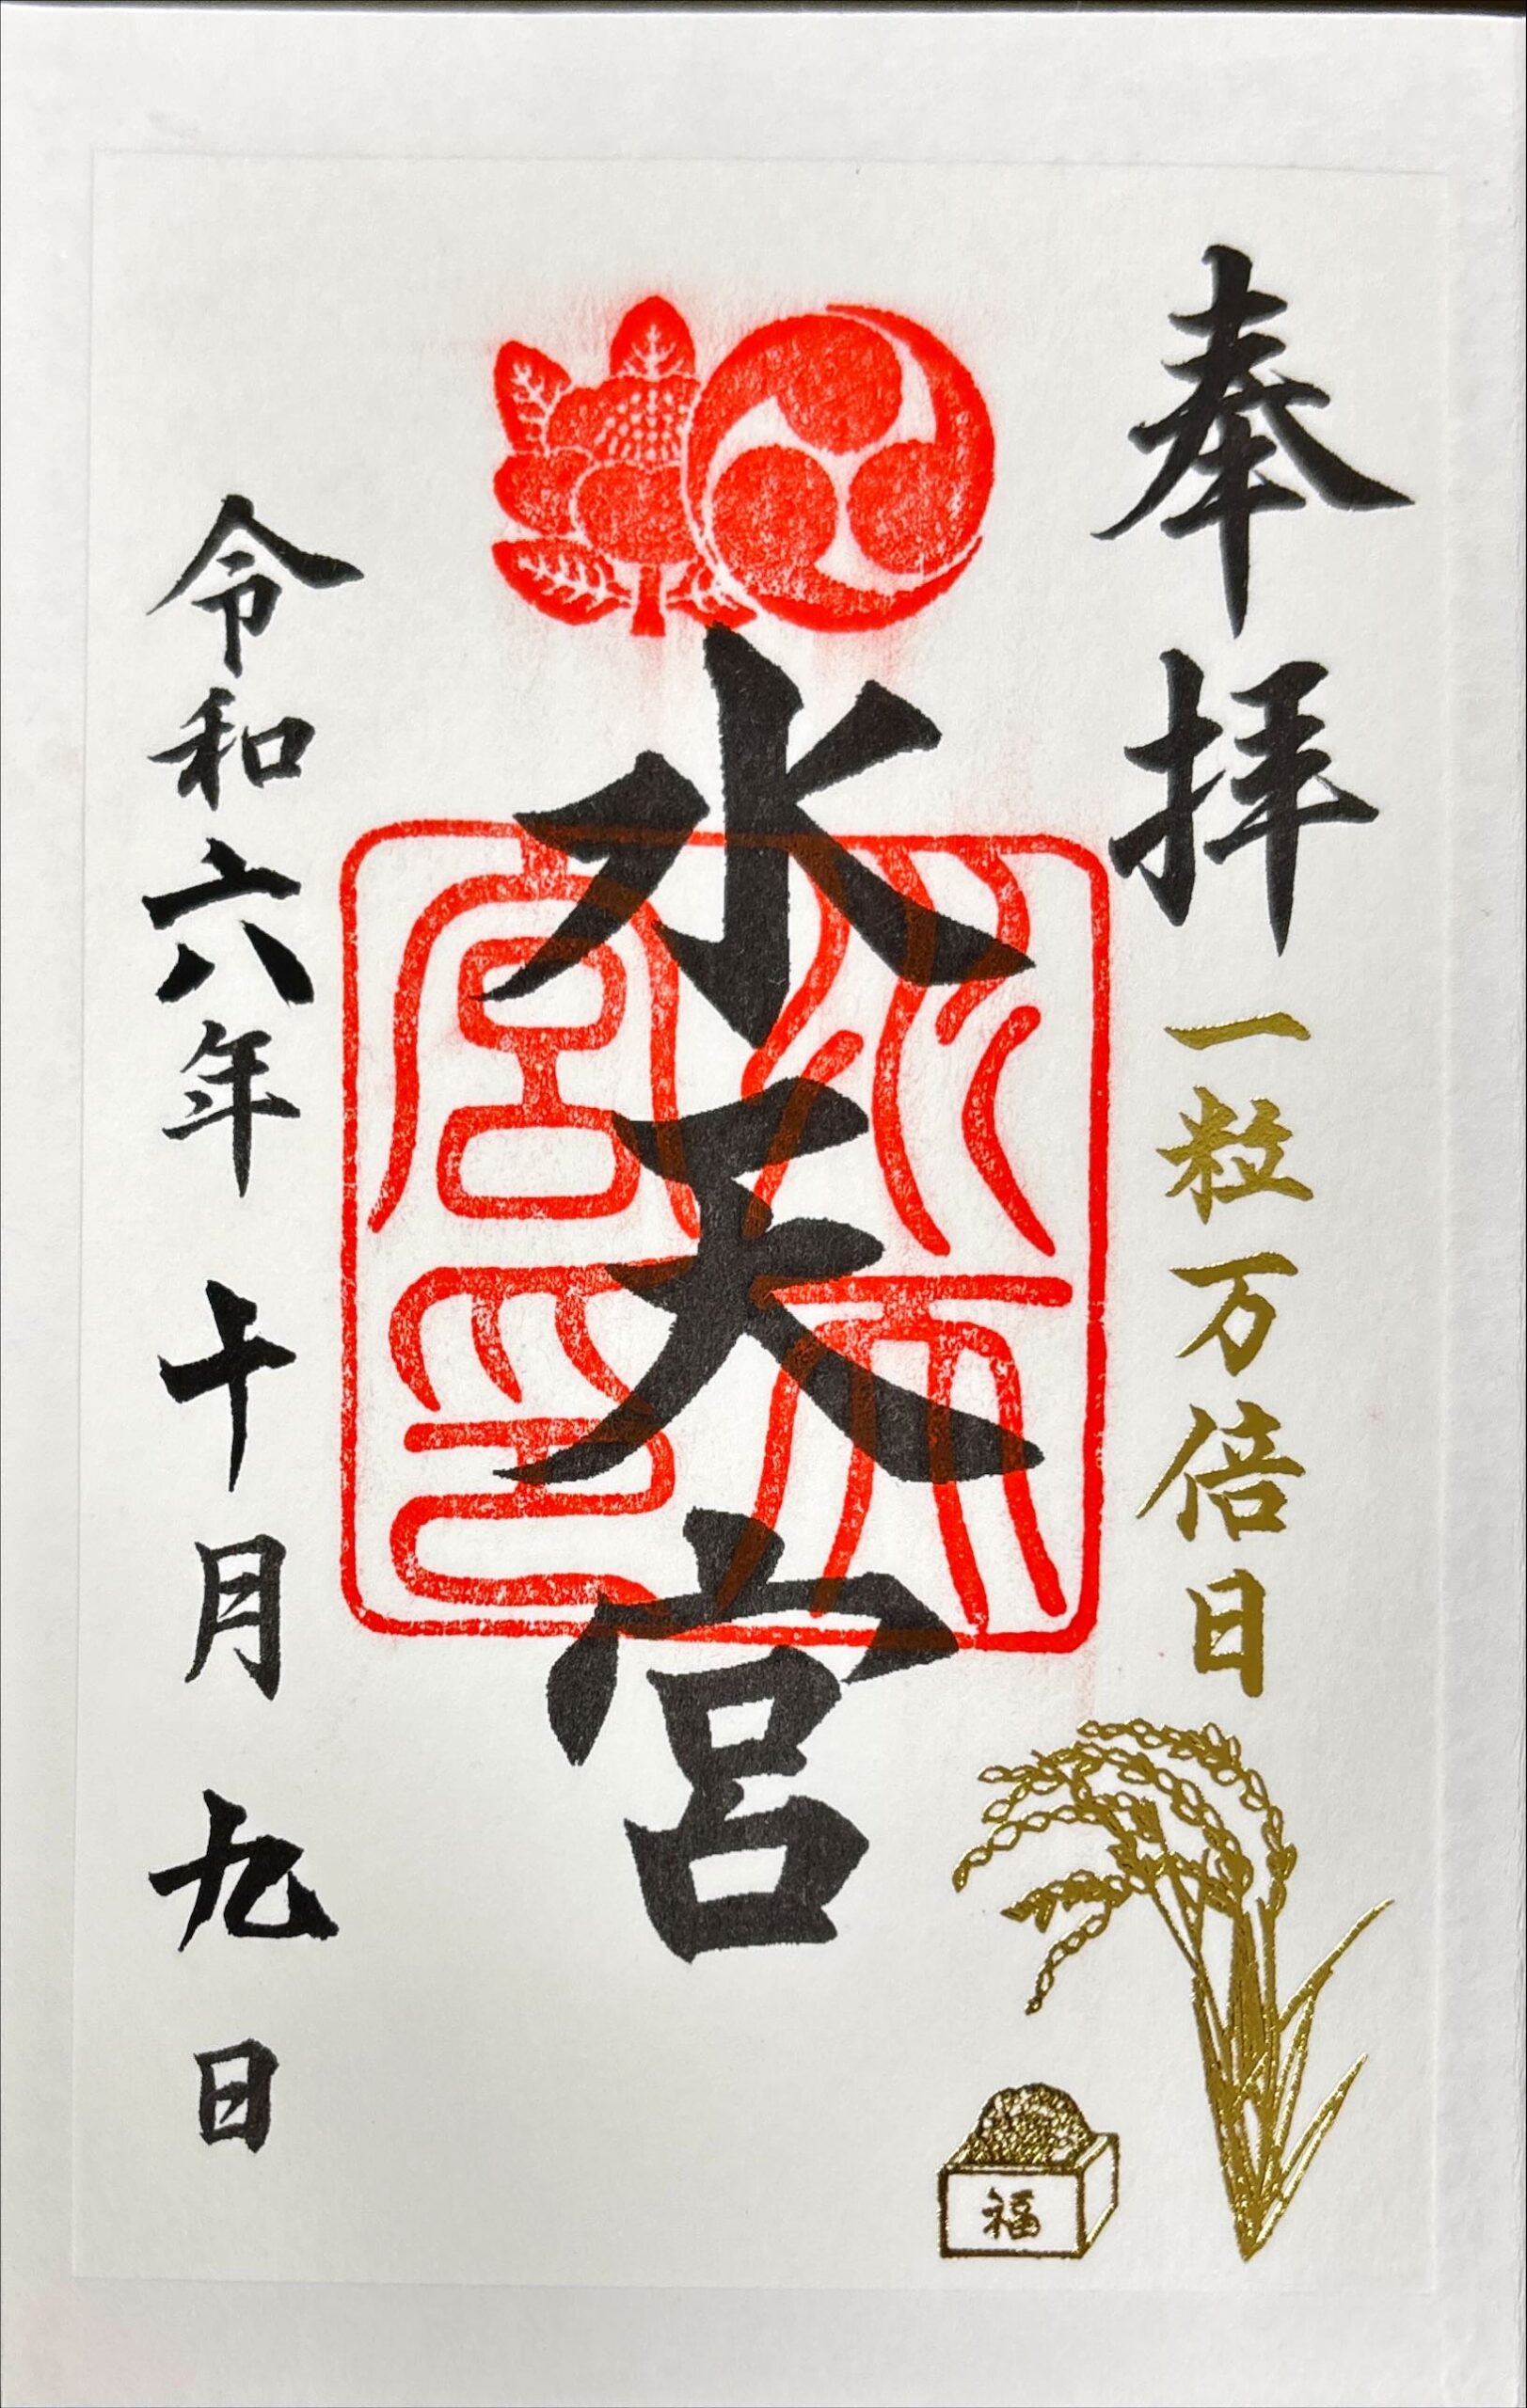 奉拝
一粒万倍日
福
水天宮
水天宮印
令和六年十月九日